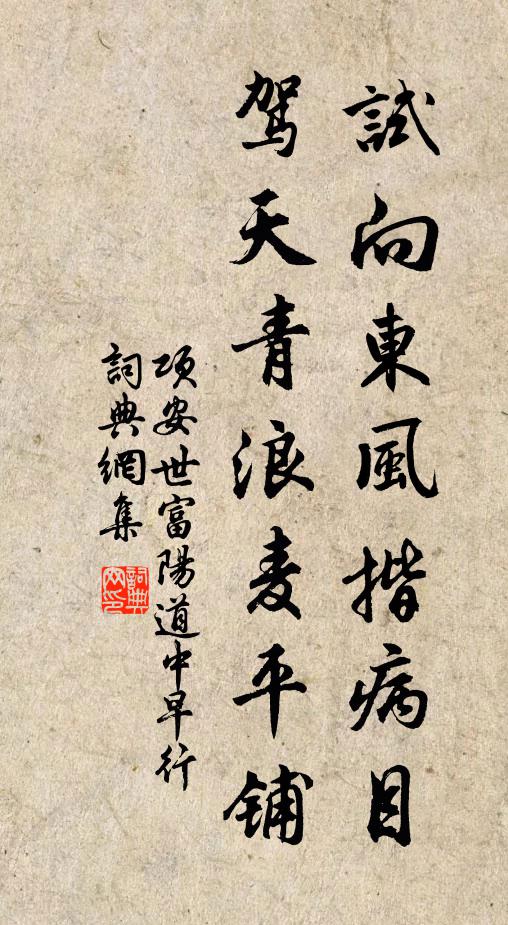 試向東風揩病目
駕天青浪麦平鋪
項安世富陽道中早行
詞典網集
詞典網印